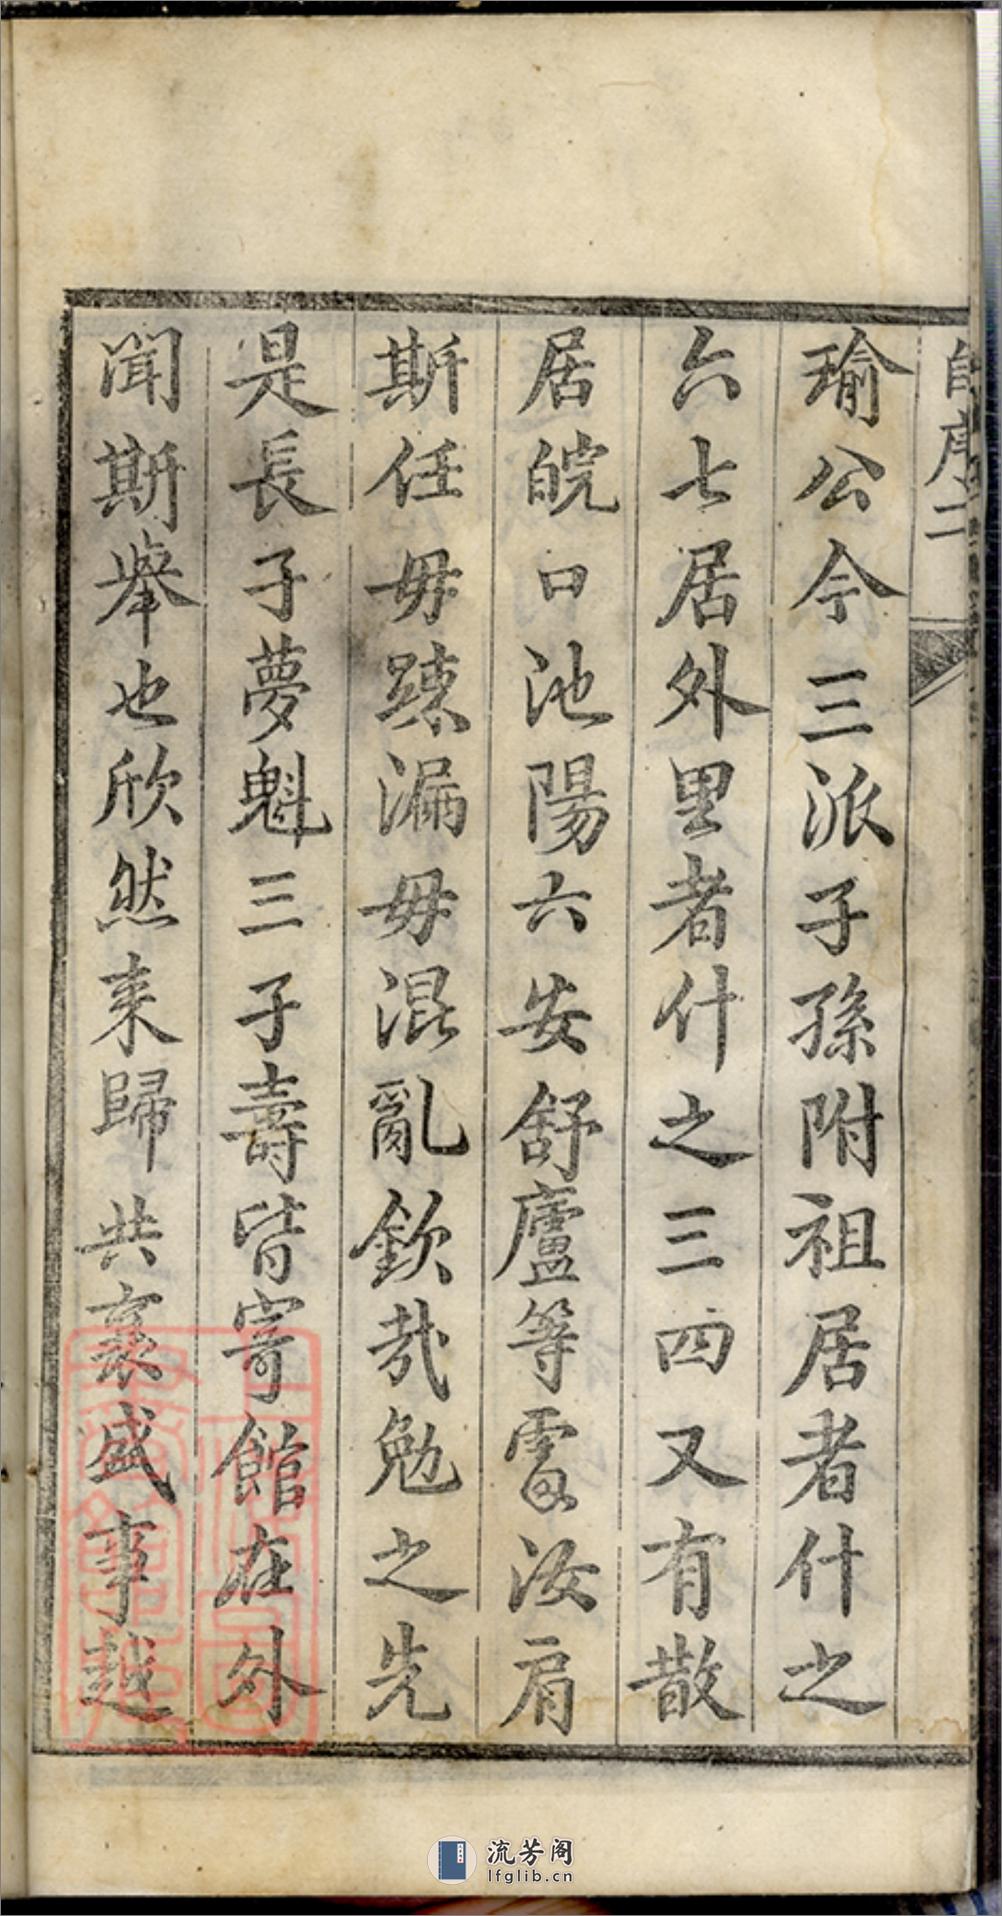 自序二
瑜公今三派子孫附祖居者什之
六七居外里者什之三四又有散
居皖口池陽六安舒廬等處汝肩
斯任毋踈漏毋混亂欽哉勉之先
是長子夢魁三子壽皆寄館在外
聞斯舉也欣然来歸共襄盛事越
流芳阁
lfglib.cn